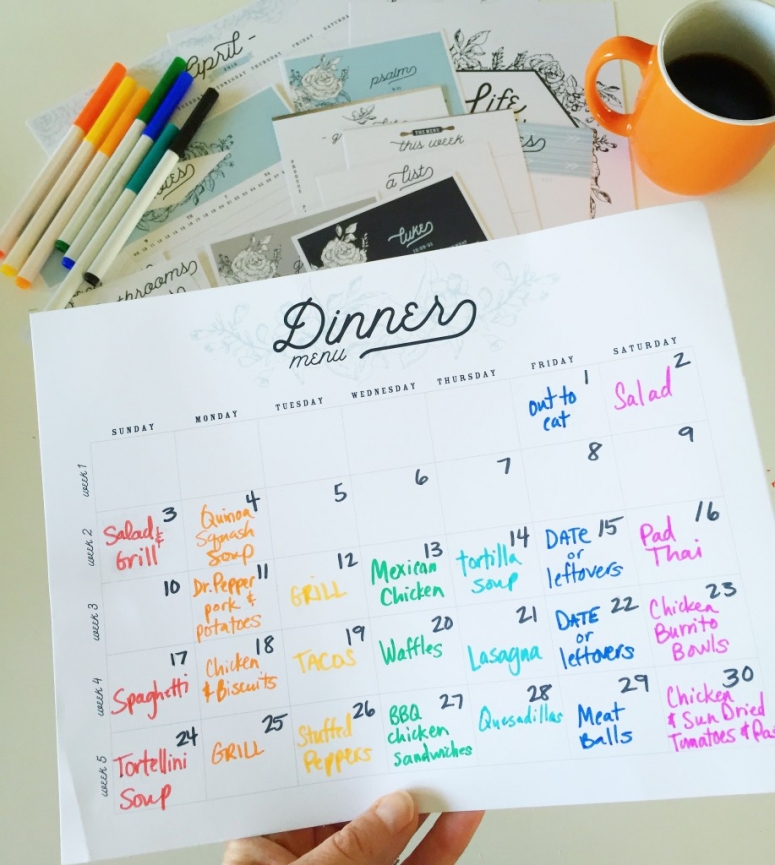 April -
psalm
Life
THE MENU
this week
a list
luke
Dinner
menu
SUNDAY
MONDAY
TUESDAY
WEDNESDAY
THURSDAY
FRIDAY
SATURDAY
week 1
1
out to
eat
2
Salad
week 2
3
Salad &
Grill
4
Quinoa
Squash
Soup
5
6
7
8
9
week 3
10
11
Dr. Pepper
pork &
potatoes
12
GRILL
13
Mexican
Chicken
14
tortilla
soup
15
DATE
or
leftovers
16
Pad
Thai
week 4
17
Spaghetti
18
Chicken
& Biscuits
19
TACOS
20
Waffles
21
Lasagna
22
DATE
or
leftovers
23
Chicken
Burrito
Bowls
week 5
24
Tortellini
Soup
25
GRILL
26
Stuffed
Peppers
27
BBQ
chicken
sandwiches
28
Quesadillas
29
Meat
Balls
30
Chicken
& Sun Dried
Tomatoes & Pas